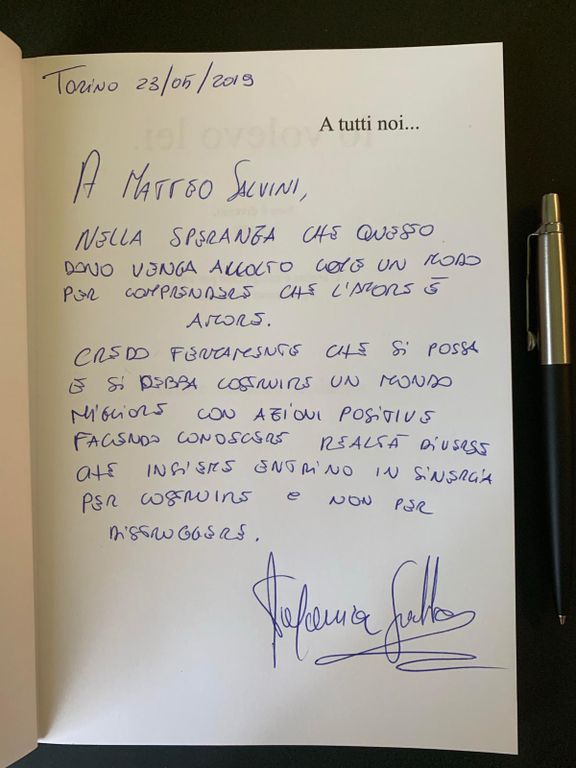 Torino 23/05/2019
A tutti noi...
A MATTEO SALVINI,
NELLA SPERANZA CHE QUESTO
DONO VENGA ACCOLTO COME UN MODO
PER COMPRENDERE CHE L'AMORE È
AMORE.
CREDO FERMAMENTE CHE SI POSSA
E SI DEBBA COSTRUIRE UN MONDO
MIGLIORE CON AZIONI POSITIVE
FACENDO CONOSCERE REALTÀ DIVERSE
CHE INSIEME ENTRINO IN SINERGIA
PER COSTRUIRE E NON PER
DISTRUGGERE.
Stefania